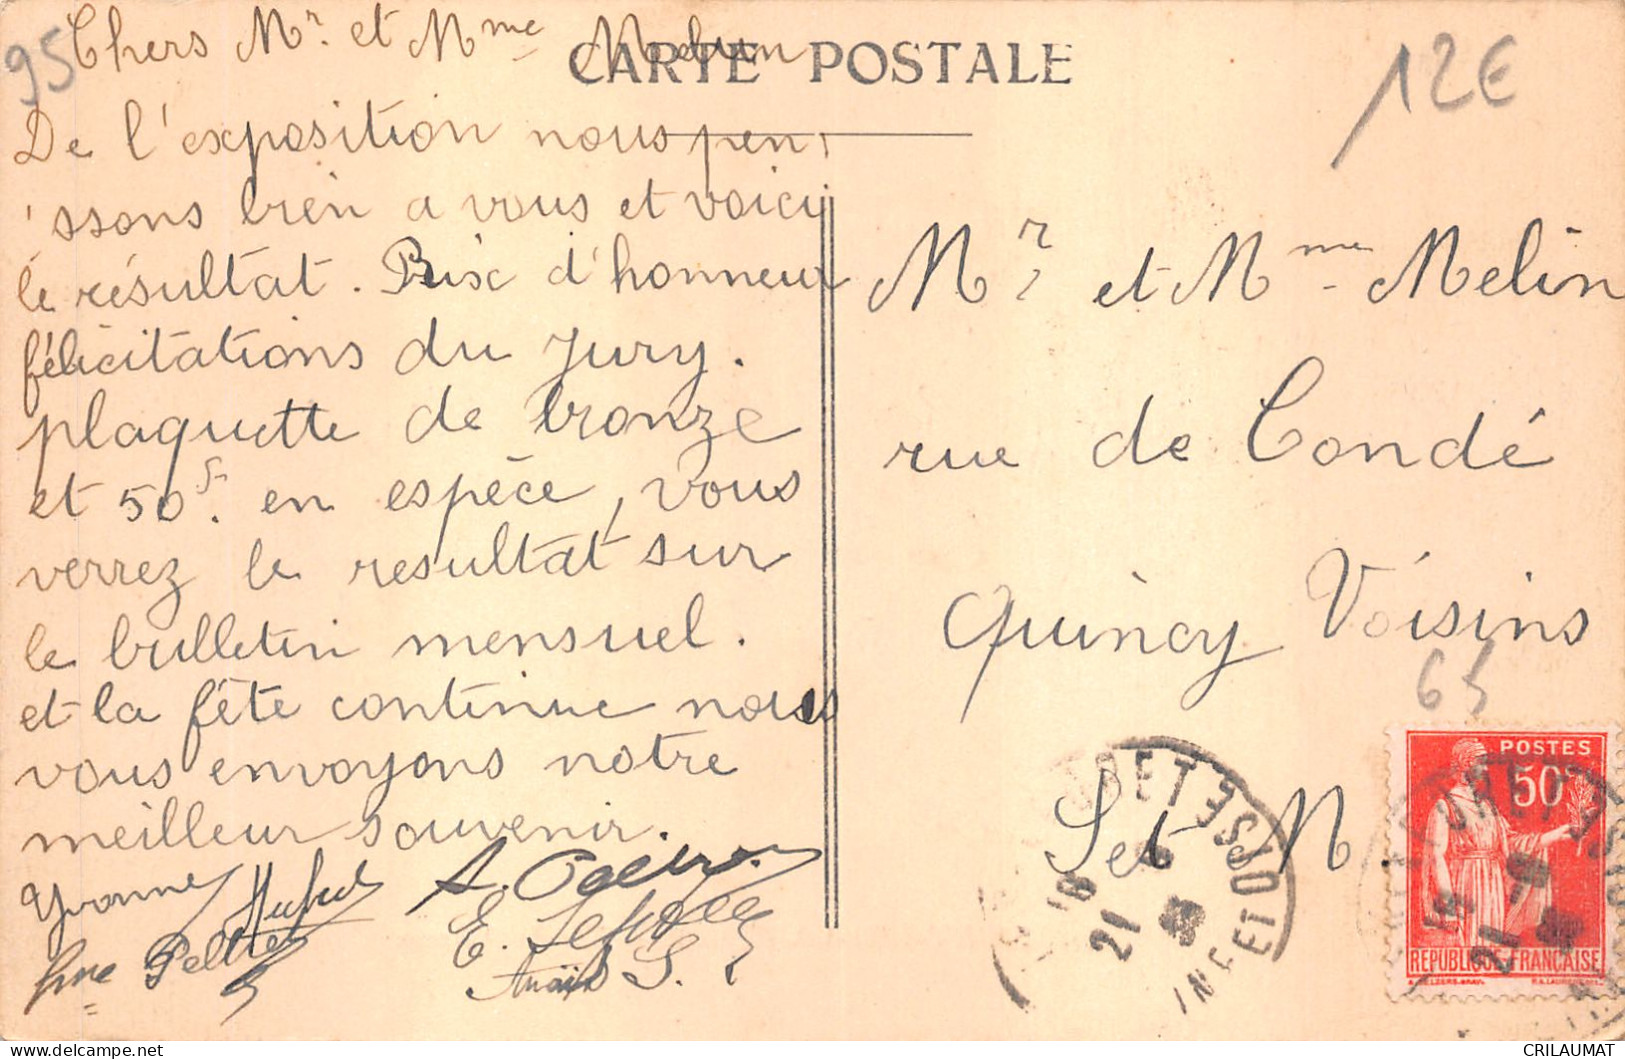 95
Chers Mr. et Mme Melun
CARTE POSTALE
12€
De l'exposition nous pen
ssons bien a vous et voici
le résultat. Prix d'honneur
félicitations du Jury.
plaquette de bronze
et 50f. en espèce, vous
verrez le resultat sur
le bulletin mensuel.
et la fête continue nous
vous envoyons notre
meilleur souvenir.
Yvonne
A.
E.
Mme Peltier
Anaïs S.
Mr et Mme Melin
rue de Condé
Quincy Voisins
65
S et M.
POSTES
50c
REPUBLIQUE FRANÇAISE
SEINE ET OISE
21
CRILAUMAT